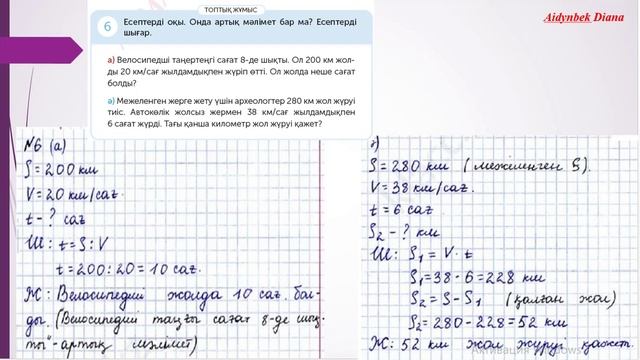 ТОПТЫҚ ЖҰМЫС
Aidynbek Diana
6
Есептерді оқы. Онда артық мәлімет бар ма? Есептерді
шығар.
а) Велосипедші таңертеңгі сағат 8-де шықты. Ол 200 км жол-
ды 20 км/сағ жылдамдықпен жүріп өтті. Ол жолда неше сағат
болды?
ә) Межеленген жерге жету үшін археологтер 280 км жол жүруі
тиіс. Автокөлік жолсыз жермен 38 км/сағ жылдамдықпен
6 сағат жүрді. Тағы қанша километр жол жүруі қажет?
№6 (а)
S = 200 км
V = 20 км/сағ
t - ? сағ
Ш: t = S : V
t = 200 : 20 = 10 сағ.
Ж: Велосипедші жолда 10 сағ. бол-
ды. (Велосипедші таңғы сағат 8-де шық-
ты" - артық мәлімет)
S = 280 км (межеленген S).
V = 38 км/сағ.
t = 6 сағ
S2 - ? км
Ш: S1 = V · t
S1 = 38 · 6 = 228 км
S2 = S - S1 (қалған жол)
S2 = 280 - 228 = 52 км
Ж: 52 км жол жүруі қажет.
Активация Windows